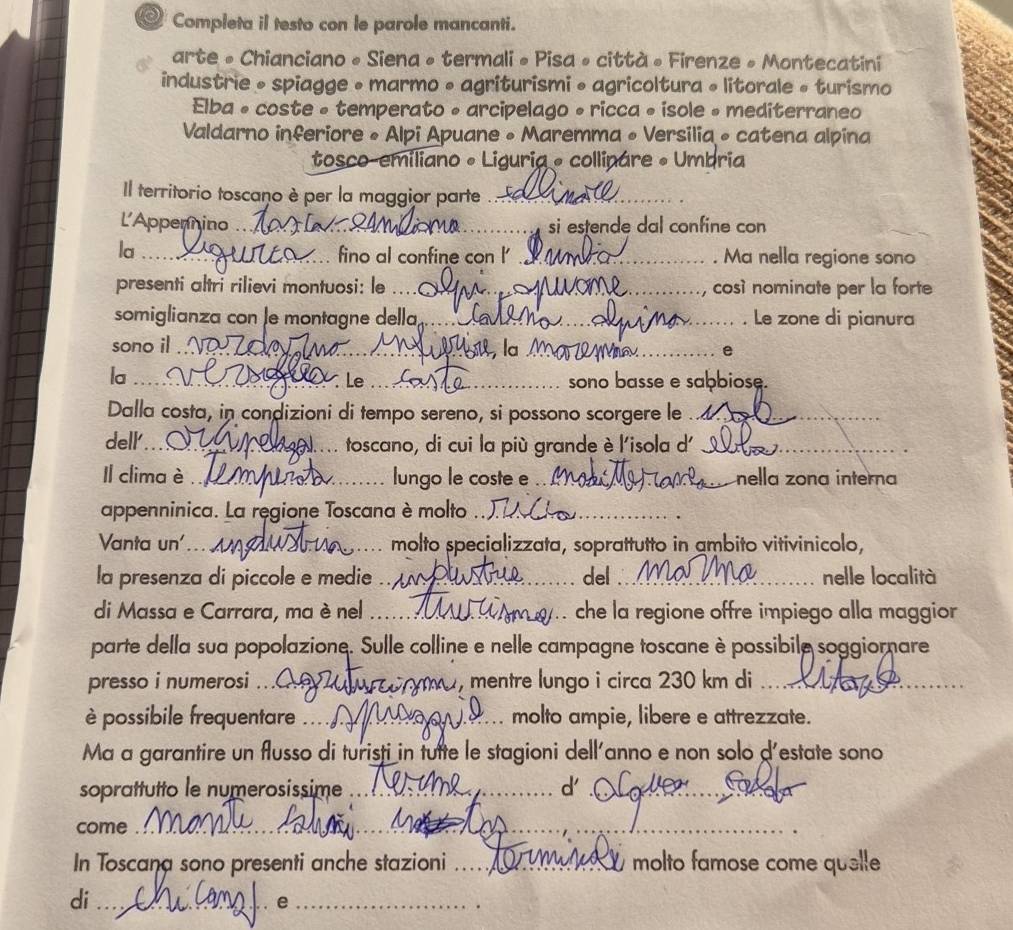 Completa il testo con le parole mancanti.
arte • Chianciano • Siena • termali • Pisa • città • Firenze • Montecatini
industrie • spiagge • marmo • agriturismi • agricoltura • litorale • turismo
Elba • coste • temperato • arcipelago • ricca • isole • mediterraneo
Valdarno inferiore • Alpi Apuane • Maremma • Versilia • catena alpina
tosco-emiliano • Liguria • collinare • Umbria
Il territorio toscano è per la maggior parte collinare .
L'Appennino si estende dal confine con
la liguria fino al confine con l' . Ma nella regione sono
presenti altri rilievi montuosi: le alpi apuane , così nominate per la forte
somiglianza con le montagne della catena alpina . Le zone di pianura
sono il vardarno inferiore, la maremma e
la versiglia. Le coste sono basse e sabbiose.
Dalla costa, in condizioni di tempo sereno, si possono scorgere le isole
dell' toscano, di cui la più grande è l'isola d' elba .
Il clima è temperato lungo le coste e nella zona interna
appenninica. La regione Toscana è molto ricca .
Vanta un' industria molto specializzata, soprattutto in ambito vitivinicolo,
la presenza di piccole e medie industrie del marmo nelle località
di Massa e Carrara, ma è nel turismo che la regione offre impiego alla maggior
parte della sua popolazione. Sulle colline e nelle campagne toscane è possibile soggiornare
presso i numerosi , mentre lungo i circa 230 km di
è possibile frequentare molto ampie, libere e attrezzate.
Ma a garantire un flusso di turisti in tutte le stagioni dell'anno e non solo d'estate sono
soprattutto le numerosissime terme d' acqua calda
come monte , .
In Toscana sono presenti anche stazioni molto famose come quelle
di e .